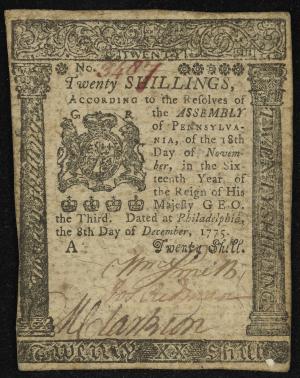 TWENTY
No. 
Twenty SHILLINGS,
ACCORDING to the Resolves of
G R the ASSEMBLY
of PENNSYLVA-
NIA, of the 18th
Day of Novem-
ber, in the Six-
teenth Year of
the Reign of His
Majesty GEO.
the Third. Dated at Philadelphia,
the 8th Day of December, 1775.
A Twenty Shill.
M Clarkson
Twenty XX Shill